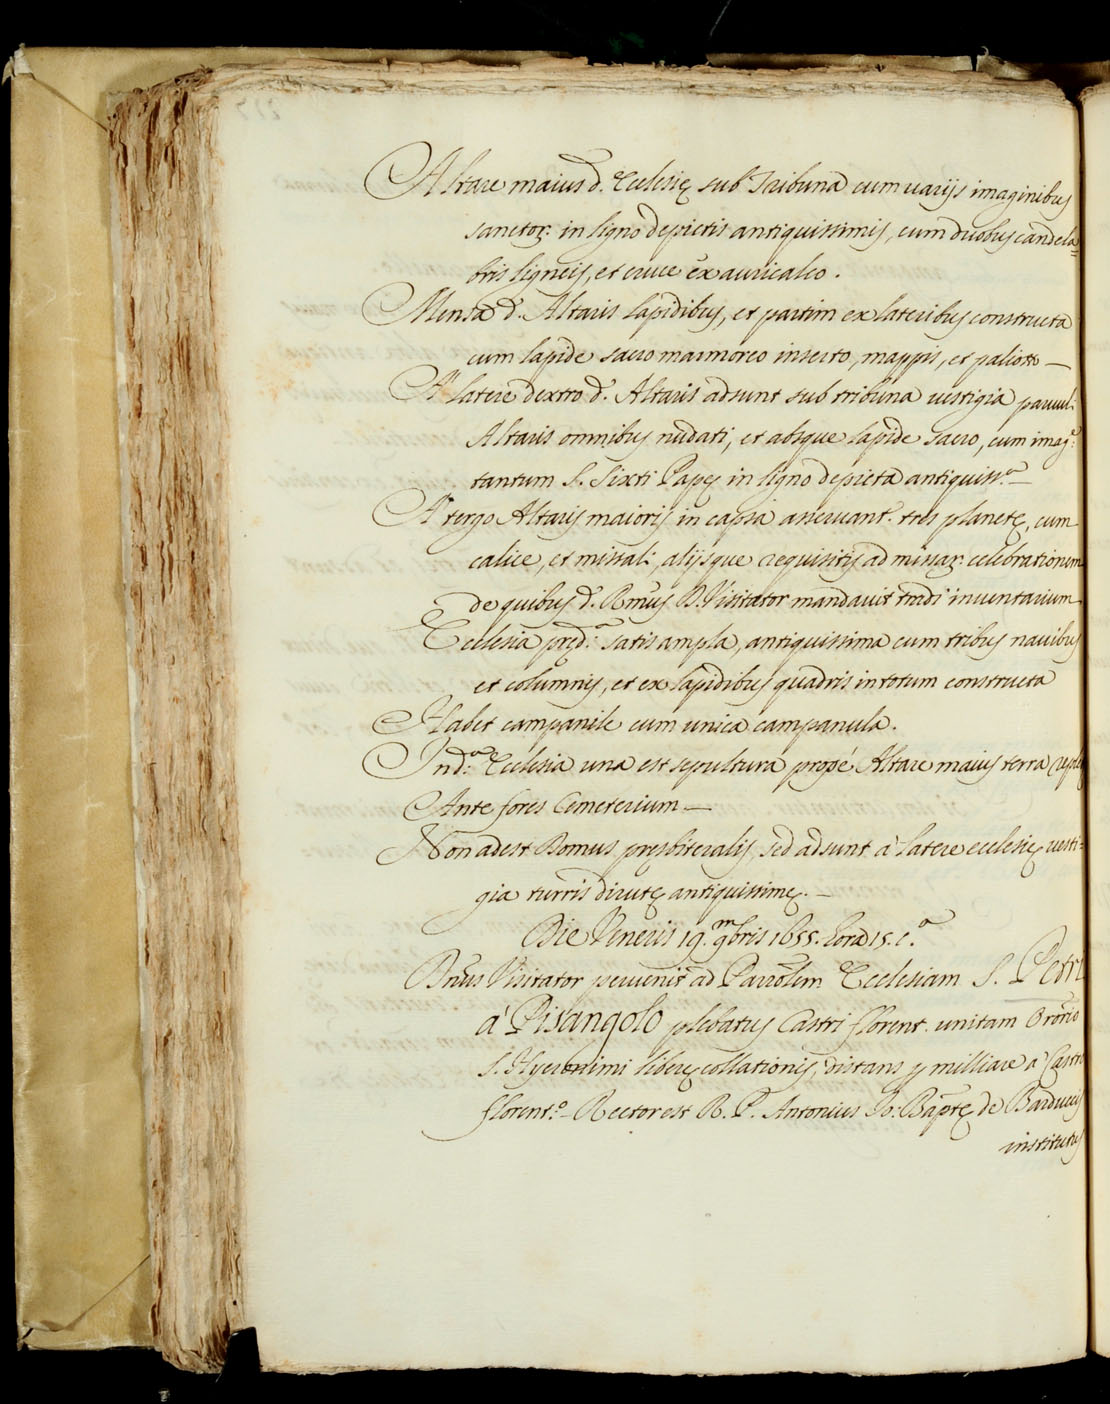 Altare maius d. Ecclesię sub Tribuna cum varijs imaginibus
sanctor: in ligno depictis antiquissimis, cum duobus candela=
bris ligneis, et cruce ex auricalco.
Mensa d. Altaris lapidibus, et partim ex lateribus constructa
cum lapide sacro marmoreo inserto, mappis, et paliotto —
A' latere dextro d. Altaris adsunt sub tribuna vestigia paruul:
Altaris omnibus nudati, et absque lapide sacro, cum imag:e
tantum S. Sixti Papę in ligno depicta antiquiss.a —
A' tergo Altaris maioris in capsa asseruant. tres planetę, cum
calice, et missali, alijsque requisitis ad missar: celebrationem
de quibus d. Rmus D. Visitator mandavit tradi inventarium
Ecclesia pręd.a satis ampla, antiquissima cum tribus navibus
et columnis, et ex lapidibus quadris in totum constructa
Habet campanile cum unica campanula.
In d.a Ecclesia una est sepultura propé Altare maius terra
Ante fores Cemeterium —
Non adest Domus pręsbiteralis, sed adsunt à latere ecclesię vesti=
gia turris dirutę antiquissimę. —
Die Veneris 19. m 9bris 1655. hora 15. c.a
Dnus Visitator pervenit ad Parrolem Ecclesiam S. Petri
à Pisangolo plebatus Castri florent. unitam Ororio
S. Hyeronimi liberę collationis, distans p milliare a Castro
florent.o — Rector est R. P. Antonius Jo: Baptę de Barduccis
institutus